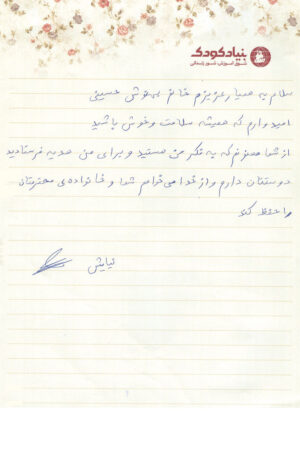 بنیاد کودک
شورِ آموزش، شورِ زندگی
سلام به همیار عزیزم خانم بهنوش حسینی
امیدوارم که همیشه سلامت و خوش باشید
از شما ممنونم که به فکر من هستید و برای من هدیه فرستادید
دوستتان دارم و از خدا می‌خواهم شما و خانواده‌ی محترمتان
را حفظ کند
نیایش